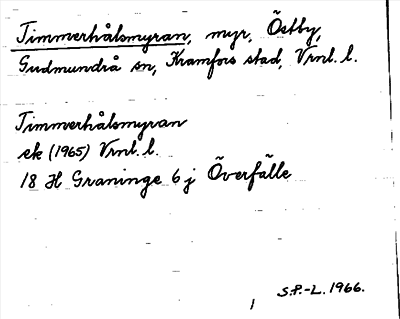 Timmerhålsmyran, myr, Östby,
Gudmundrå sn, Kramfors stad, Vrnl. l.
Timmerhålsmyran
ek (1965) Vrnl. l.
18 H Graninge 6 j Överfälle
S.P.-L. 1966.
1